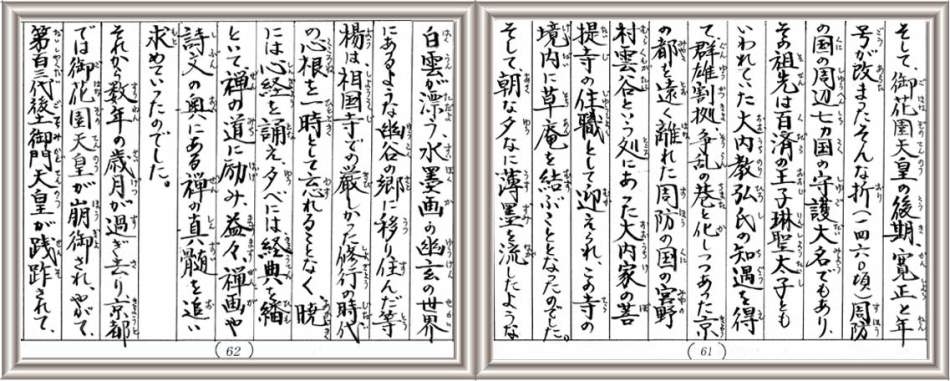 そして、御花園天皇の後期、寛正と年
号が改まったそんな折(一四六〇頃)周防
の国の周辺七ヵ国の守護大名でもあり、
その祖先は百済の王子琳聖太子とも
いわれていた大内教弘氏の知遇を得
て、群雄割拠争乱の巷と化しつつあった京
の都を遠く離れた周防の国の宮野
村雲谷という処にあった大内家の菩
提寺の住職として迎えられ、この寺の
境内に草庵を結ぶこととなったのでした。
そして、朝な夕なに薄墨を流したような
(61)
白雲が漂う、水墨画の幽玄の世界
にあるような幽谷の郷に移り住んだ等
楊は、相国寺での厳しかった修行の時代
の心根を一時として忘れることなく、暁
には心経を誦え、夕べには経典を繙
といて、禅の道に励み、益々禅画や
詩文の奥にある禅の真髄を追い
求めていったのでした。
それから数年の歳月が過ぎ去り京都
では御花園天皇が崩御され、やがて、
第百三代後土御門天皇が践祚されて、
(62)